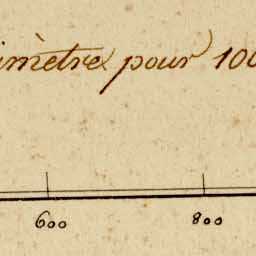 imètre pour 100
600 800